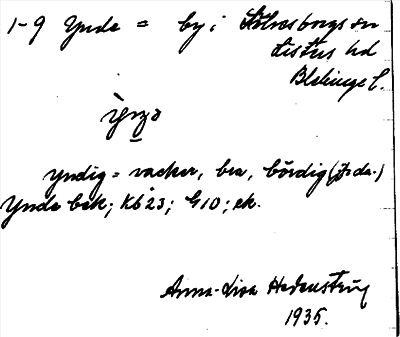 1-9 Ynde = by i Sölvesborgs
Listers hd
Blekinge l.
yndig = vacker, bra, bördig (jfr da.)
Ynde bek; Kb 23; G10; ek.
Anna-Lisa Hedenström
1935.